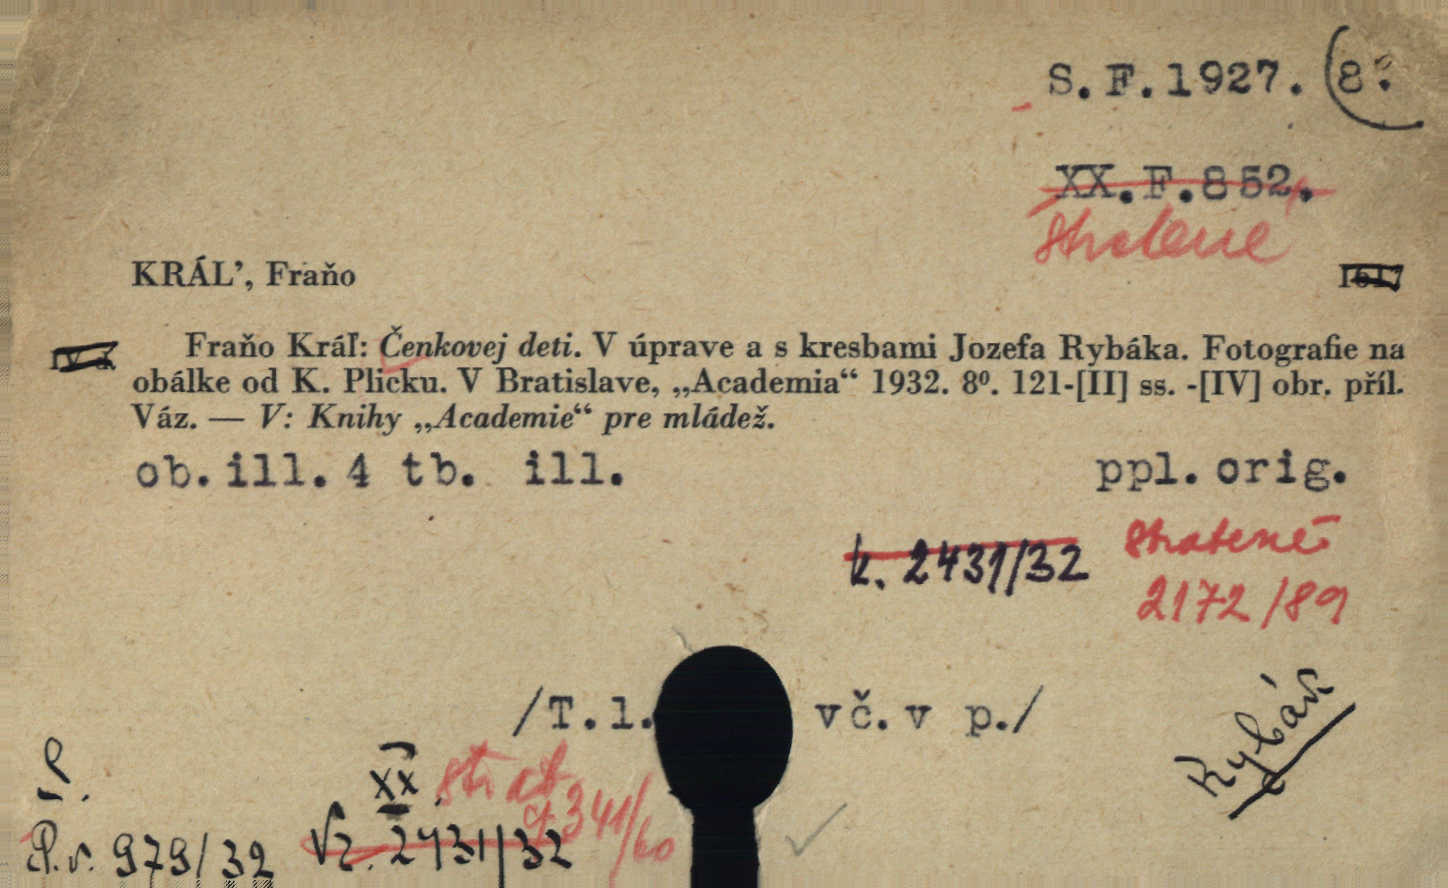 S.F.1927. (8°.
XX.F.852.
Stratené
KRÁL’, Fraňo
Fraňo Kráľ: Čenkovej deti. V úprave a s kresbami Jozefa Rybáka. Fotografie na
obálke od K. Plicku. V Bratislave, „Academia“ 1932. 8⁰. 121-[II] ss. -[IV] obr. příl.
Váz. — V: Knihy „Academie“ pre mládež.
ob.ill.4 tb. ill.
ppl.orig.
k. 2431/32
stratené
2172/89
/T.l. vč.v p./
Rybák
P.
XX.
strat
341/60
P.v. 979/32
2431/32